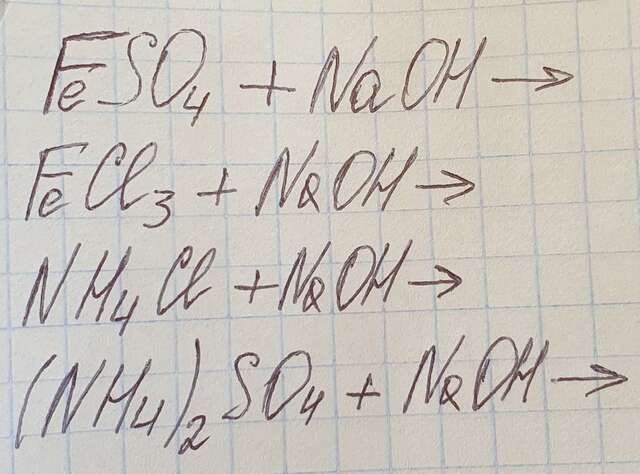 FeSO₄ + NaOH →
FeCl₃ + NaOH →
NH₄Cl + NaOH →
(NH₄)₂SO₄ + NaOH →